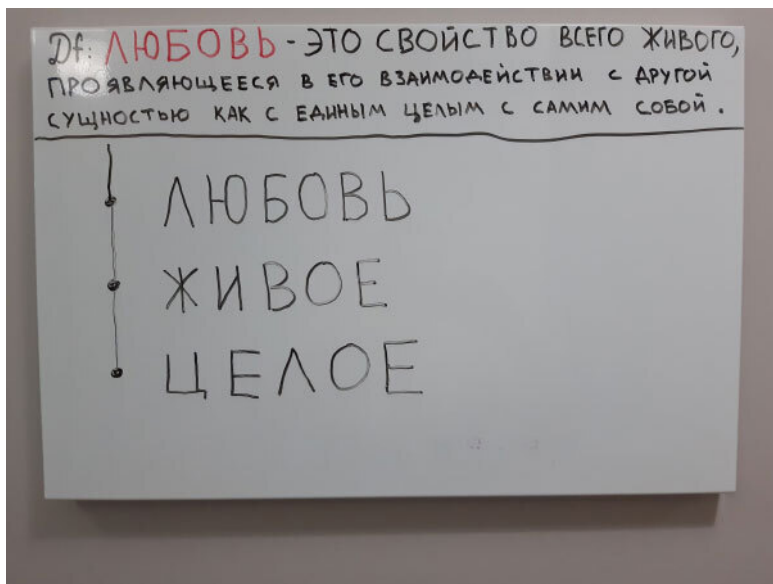 Df: ЛЮБОВЬ - ЭТО СВОЙСТВО ВСЕГО ЖИВОГО,
ПРОЯВЛЯЮЩЕЕСЯ В ЕГО ВЗАИМОДЕЙСТВИИ С ДРУГОЙ
СУЩНОСТЬЮ КАК С ЕДИНЫМ ЦЕЛЫМ С САМИМ СОБОЙ.
ЛЮБОВЬ
ЖИВОЕ
ЦЕЛОЕ